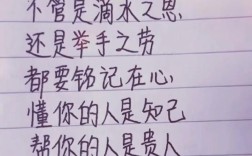 不管是滴水之恩
还是举手之劳
都要铭记在心
懂你的人是知己
帮你的人是贵人